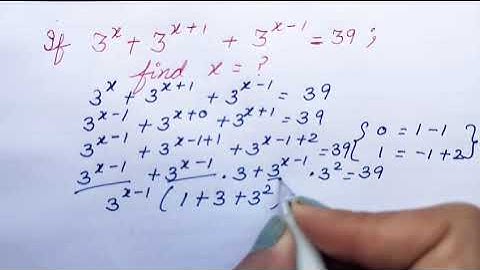 If 3^x + 3^{x+1} + 3^{x-1} = 39 ;
find x = ?
3^x + 3^{x+1} + 3^{x-1} = 39
3^{x-1} + 3^{x+0} + 3^{x+1} = 39
3^{x-1} + 3^{x-1+1} + 3^{x-1+2} = 39 { 0 = 1-1
1 = -1+2 }
3^{x-1} + 3^{x-1} · 3 + 3^{x-1} · 3^2 = 39
3^{x-1} ( 1 + 3 + 3^2